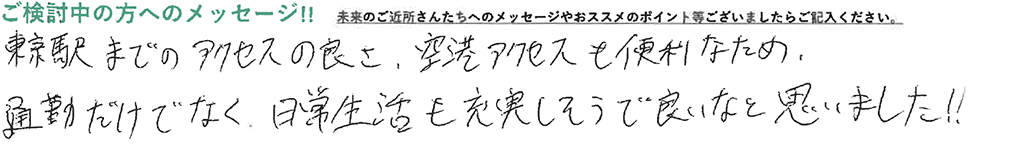 ご検討中の方へのメッセージ!! 未来のご近所さんたちへのメッセージやおススメのポイント等ございましたらご記入ください。
東京駅までのアクセスの良さ、空港アクセスも便利なため、
通勤だけでなく、日常生活も充実しそうで良いなと思いました!!